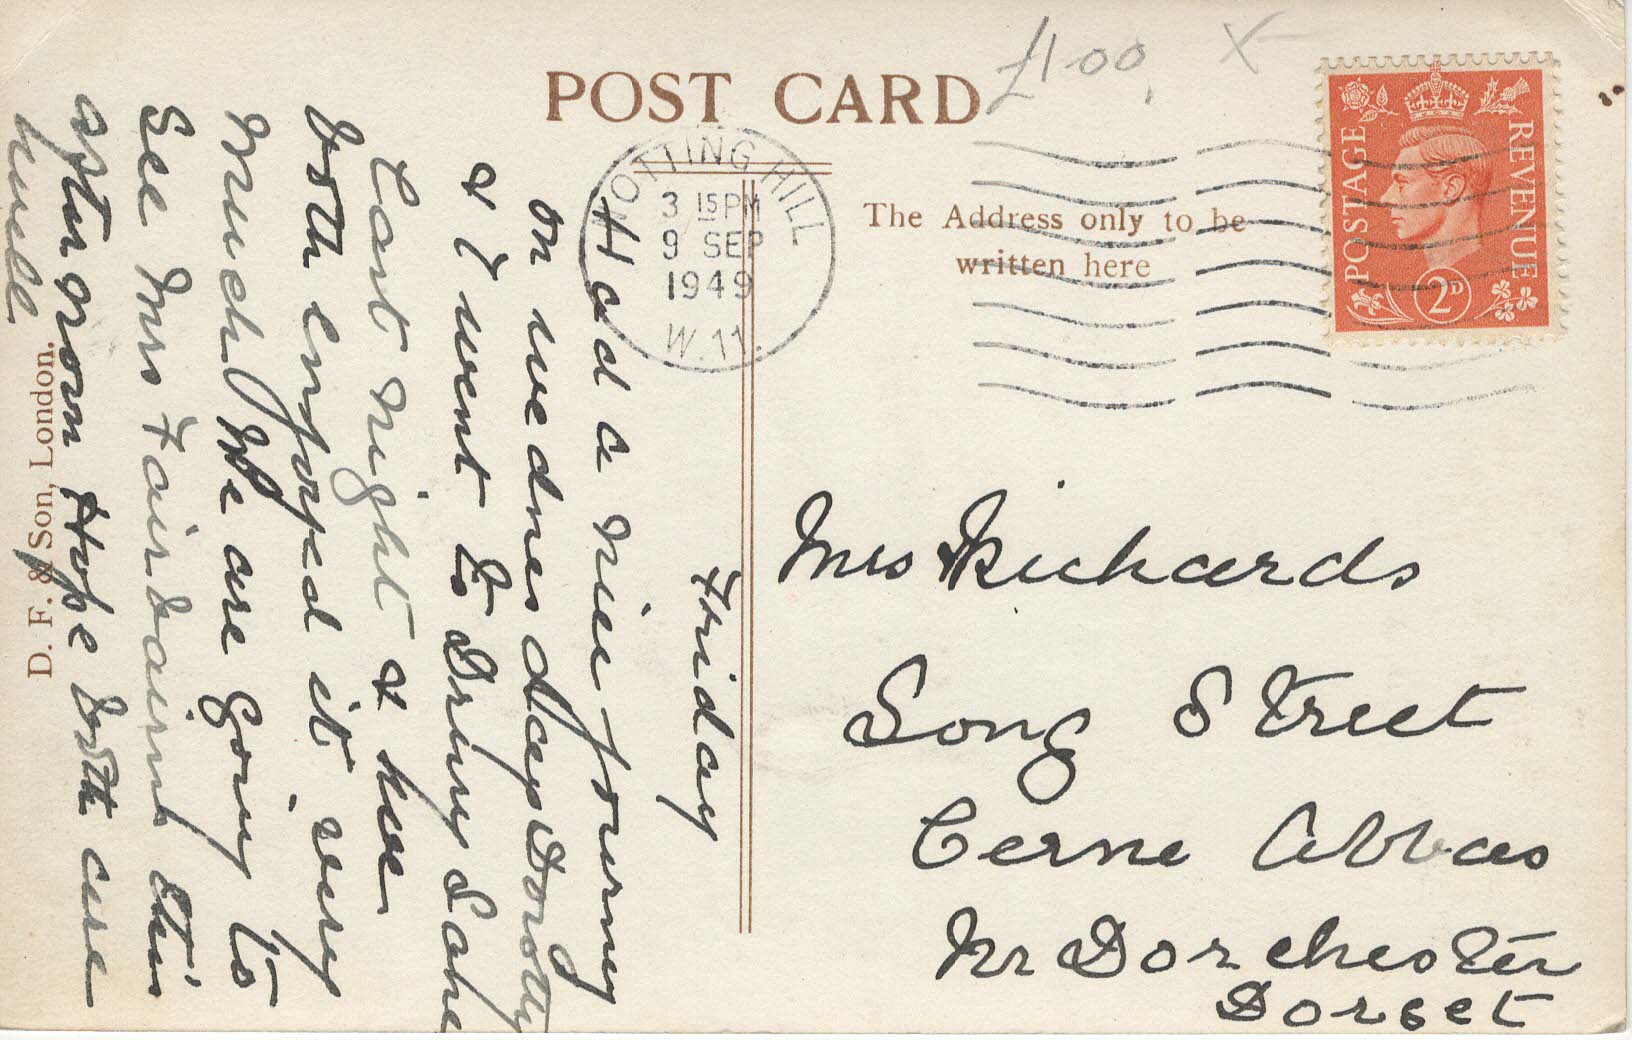 POST CARD
£1.00 X
NOTTING HILL
3 15 PM
9 SEP
1949
W.11.
POSTAGE
REVENUE
2D
The Address only to be
written here
Friday
Had a nice journey
on wednesday Dorothy
& I went to Drury Lane
Last night &
both enjoyed it very
much We are going to
See Mrs Fairbairns this
afternoon Hope both are
well
Mrs Richards
Long Street
Cerne Abbas
Nr Dorchester
Dorset
D. F. & Son, London.